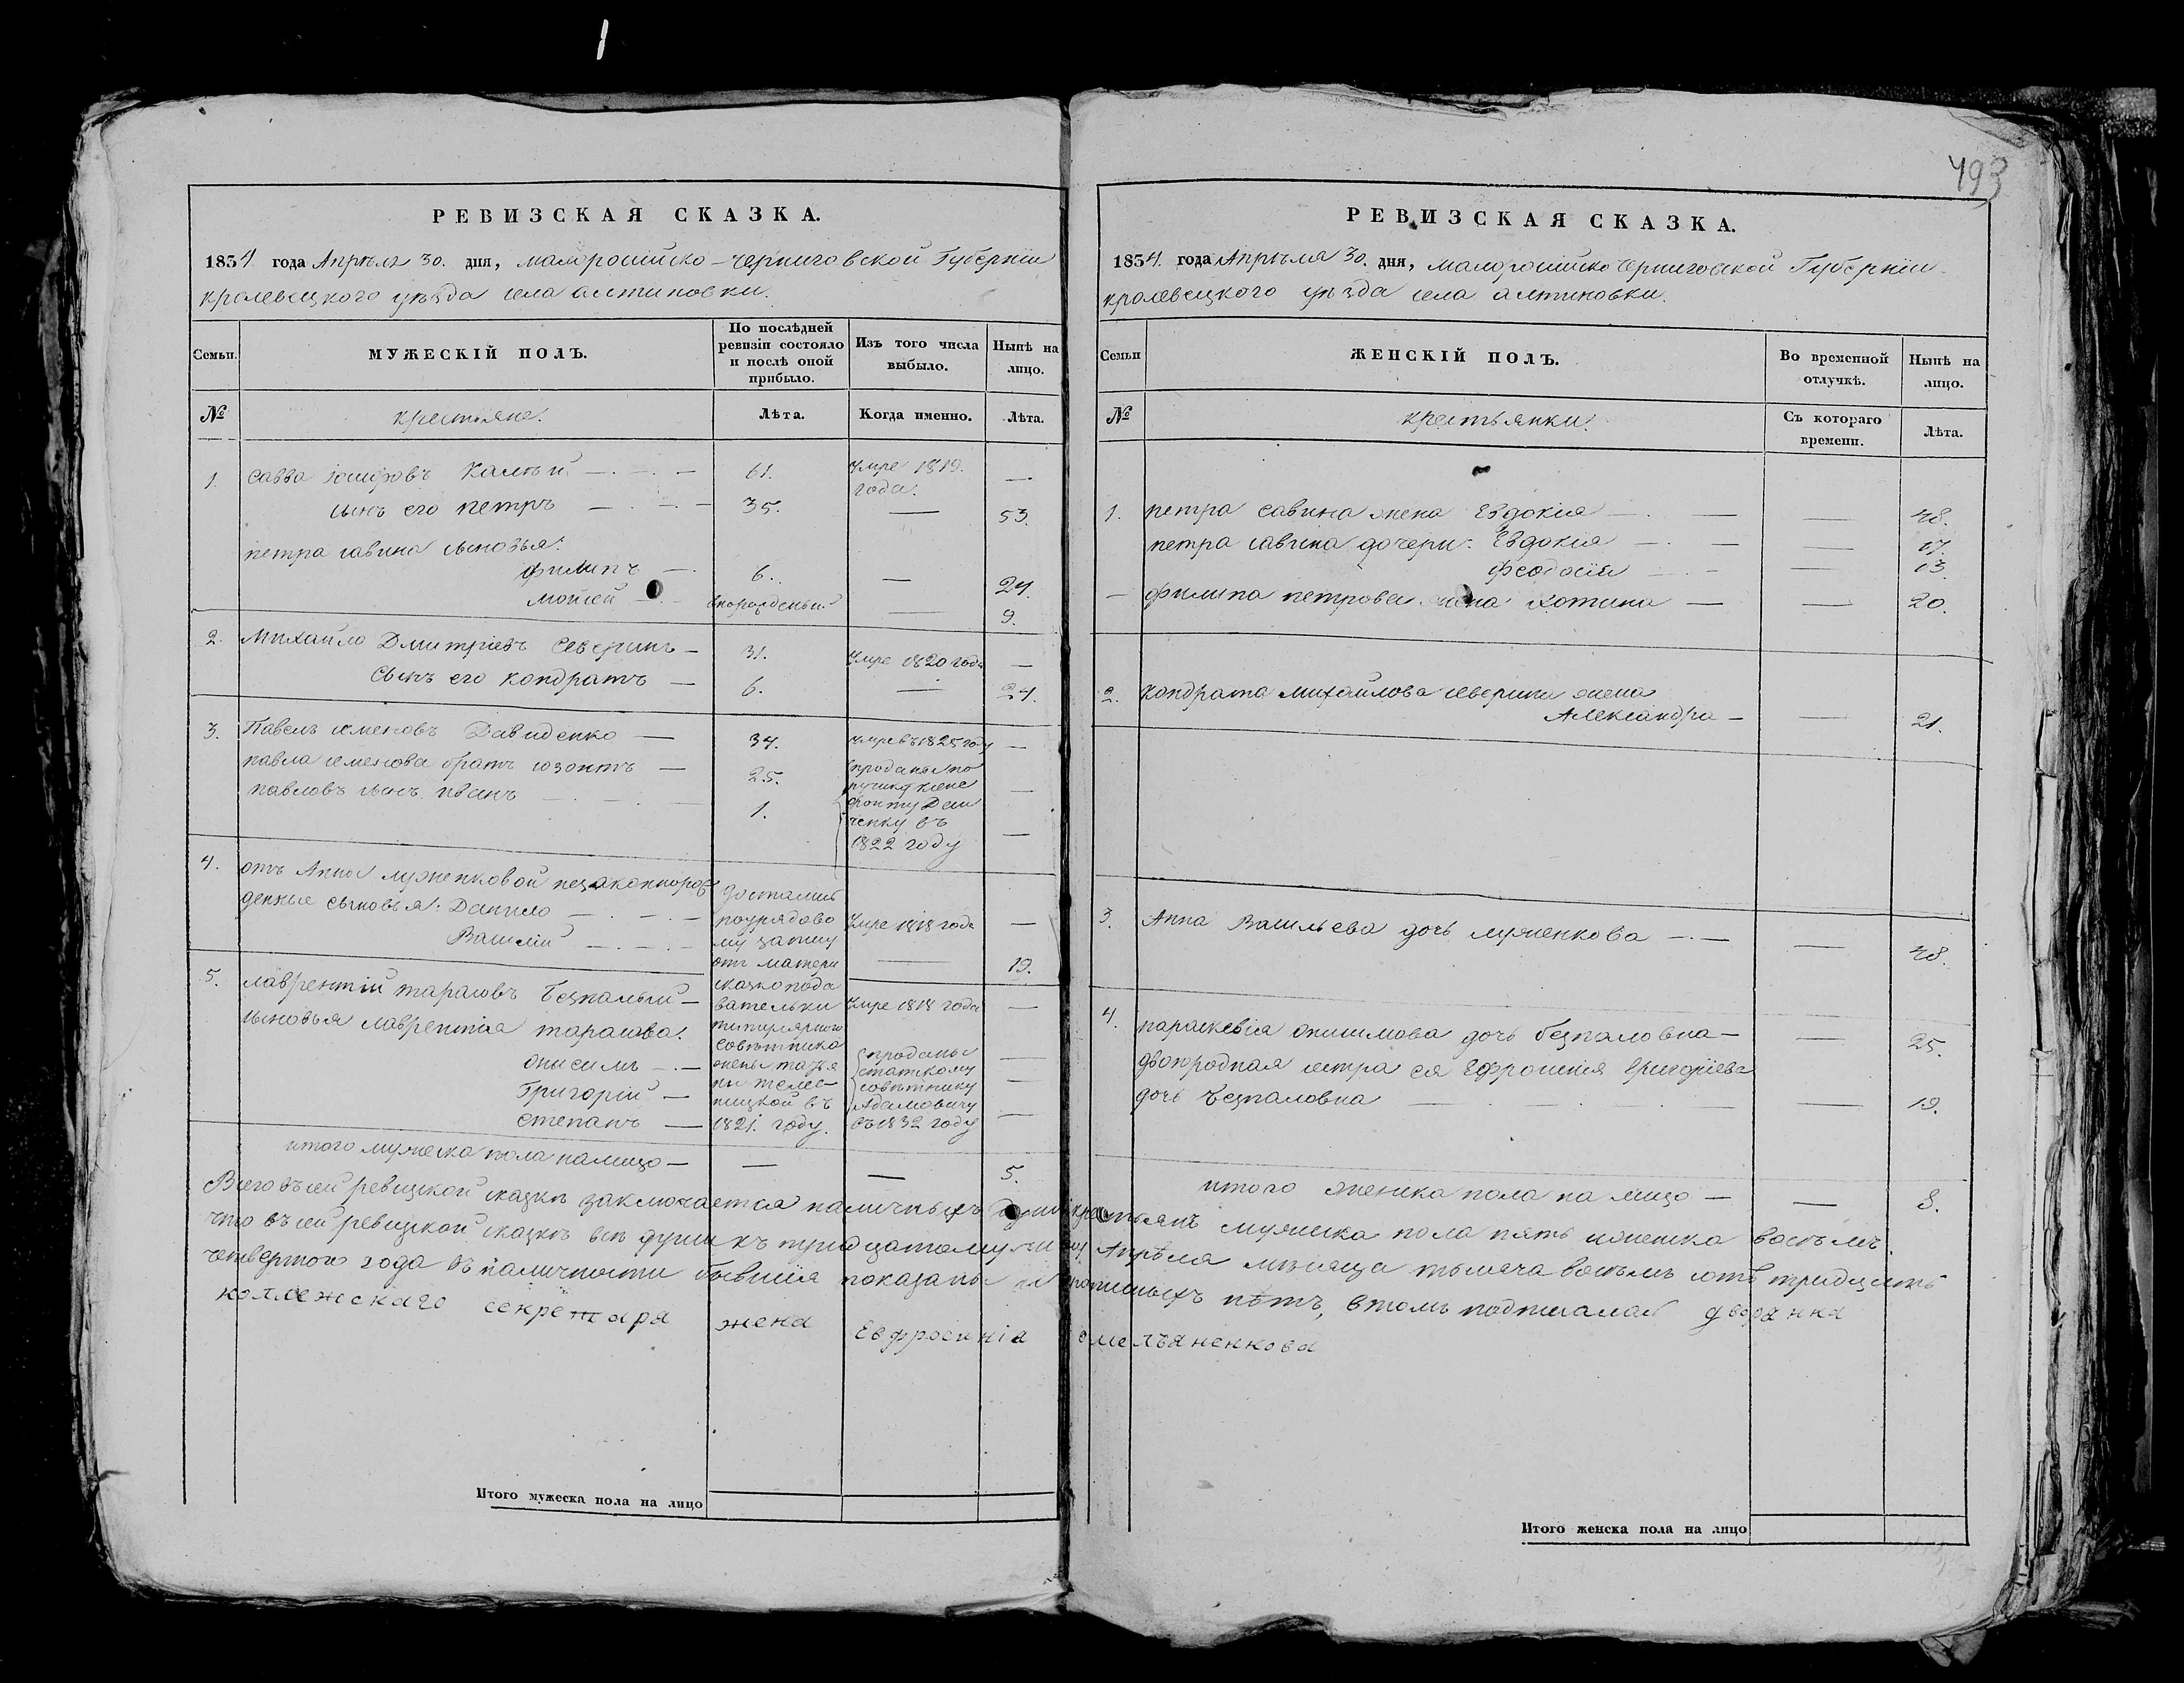 493
РЕВИЗСКАЯ СКАЗКА.
1834 года Апрѣля 30. дня, малоросійско-черниговской Губерніи
кролевецкого уѣзда села алтиновки.
Семьи.
МУЖЕСКІЙ ПОЛЪ.
По послѣдней ревизіи состояло и послѣ оной прибыло.
Изъ того числа выбыло.
Нынѣ на лицо.
№
крестьяне.
Лѣта.
Когда именно.
Лѣта.
1. савва іосифовъ 61. умре 1819. года. —
сынъ его петръ — 35. — 53.
петра савина сыновья:
филипъ — 6. — 24.
мойсей — новорожденый — 9.
2. Михайло Дмитріевъ Северинъ — 31. умре 1820 года —
сынъ его кондратъ — 6. — 24.
3. Павелъ семеновъ Давиденко — 34. умре въ 1825 году —
павла семенова братъ — 25. проданы по —
павловъ сынъ иванъ — 1. ченку въ
1822 году —
4. отъ Анны луженковой незаконнорож
денные сыновья: Данило — умре 1818 года —
Василій — — 19.
достались
по урядово
му запису
отъ матери
сказкопода
вательки
титулярного
совѣтника
жены
ницкой въ
1821. году.
5. лаврентій тарасовъ безпалый — умре 1818 года —
сыновья лаврентія тарасова:
онисимъ — проданы —
Григорій — статскому —
степанъ — совѣтнику —
Адамовичу
въ 1832 году
итого мужеска пола налицо — — — 5.
Итого мужеска пола на лицо
РЕВИЗСКАЯ СКАЗКА.
1834. года Апрѣля 30. дня, малоросійско черниговской Губерніи
кролевецкого уѣзда села алтиновки.
Семьи
ЖЕНСКІЙ ПОЛЪ.
Во временной отлучкѣ.
Нынѣ на лицо.
№
крестьянки.
Съ котораго времени.
Лѣта.
1. петра савина жена Евдокія — — 48.
петра савина дочери: Евдокія — — 17.
феодосія — — 13.
— филипа петрова жена — — 20.
2. кондрата михайлова северина жена
Александра — — 21.
3. Анна Васильева дочь луженкова — — 48.
4. параскевія онисимова дочь безпаловна — — 25.
двоюродная сестра ея Ефросинія григоріева
дочь безпаловна — — 19.
итого женска пола на лицо — — 8.
Всего въ сей ревизской сказкѣ заключается наличныхъ душъ крестьянъ мужеска пола пять женска восемъ.
что въ сей ревизской сказкѣ всѣ души къ тридцатому числу Апрѣля мѣсяца тысяча восемъ сотъ тридцать
четвертого года въ наличности бывшія показаны и прописныхъ нѣтъ, втомъ подписалась дворянка
коллежскаго секретаря жена Евфросинія омельяненкова
Итого женска пола на лицо